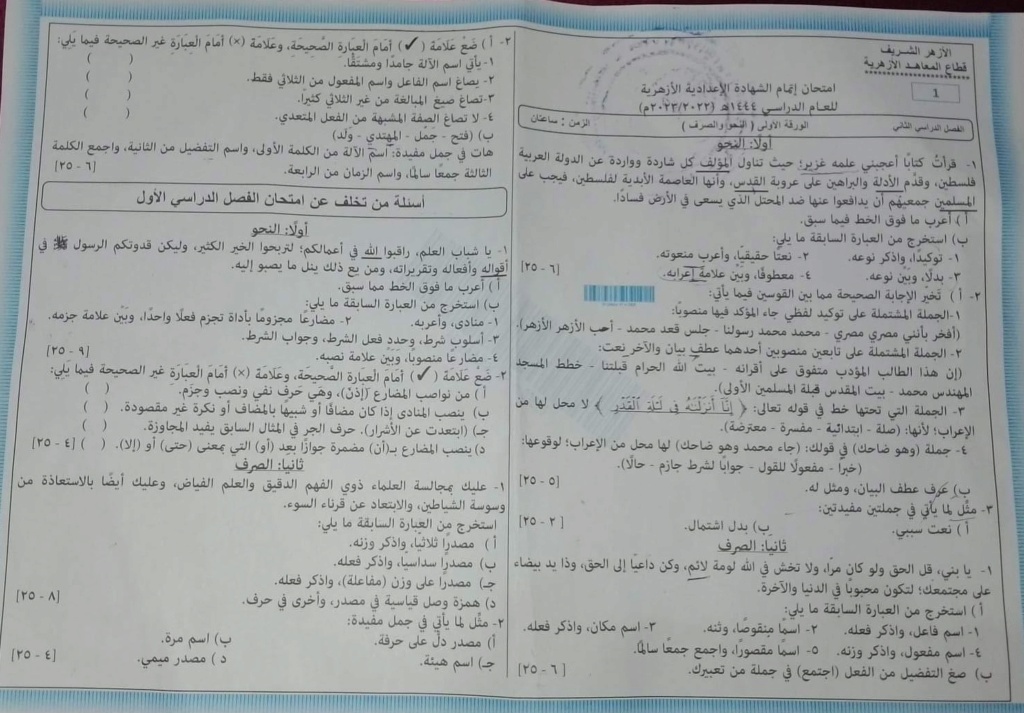 الأزهر الشريف
قطاع المعاهد الأزهرية
1
امتحان إتمام الشهادة الإعدادية الأزهرية
للعام الدراسي ١٤٤٤هـ (٢٠٢٣/٢٠٢٢م)
الفصل الدراسي الثاني الورقة الأولى ( النحو والصرف ) الزمن : ساعتان
أولًا: النحو
١- قرأتُ كتابًا أعجبني علمه غزير؛ حيث تناول المؤلف كل شاردة وواردة عن الدولة العربية
فلسطين، وقدَّم الأدلة والبراهين على عروبة القدس، وأنها العاصمة الأبدية لفلسطين، فيجب على
المسلمين جميعهم أن يدافعوا عنها ضد المحتل الذي يسعى في الأرض فسادًا.
أ ) أعرب ما فوق الخط فيما سبق.
ب) استخرج من العبارة السابقة ما يلي:
١- توكيدًا، واذكر نوعه. ٢- نعتًا حقيقيًا، وأعرب منعوته.
٣- بدلًا، وبيّن نوعه. ٤- معطوفًا، وبيّن علامة إعرابه. [٦ - ٢٥]
٢- أ ) تخير الإجابة الصحيحة مما بين القوسين فيما يأتي:
١-الجملة المشتملة على توكيد لفظي جاء المؤكد فيها منصوبًا:
(أفخر بأنني مصري مصري - محمد محمد رسولنا - جلس قعد محمد - أحب الأزهر الأزهر).
٢- الجملة المشتملة على تابعين منصوبين أحدهما عطف بيان والآخر نعت:
(إن هذا الطالب المؤدب متفوق على أقرانه - بيت الله الحرام قبلتنا - خطط المسجد
المهندس محمد - بيت المقدس قبلة المسلمين الأولى).
٣- الجملة التي تحتها خط في قوله تعالى: ﴿ إِنَّا أَنزَلْنَاهُ فِي لَيْلَةِ الْقَدْرِ ﴾ لا محل لها من
الإعراب؛ لأنها: (صلة - ابتدائية - مفسرة - معترضة).
٤- جملة (وهو ضاحك) في قولك: (جاء محمد وهو ضاحك) لها محل من الإعراب؛ لوقوعها:
(خبرًا - مفعولًا للقول - جوابًا لشرط جازم - حالًا).
ب) عرف عطف البيان، ومثل له. [٥ - ٢٥]
٣- مثّل لما يأتي في جملتين مفيدتين:
أ ) نعت سببي. ب) بدل اشتمال. [٢ - ٢٥]
ثانيًا: الصرف
١- يا بني، قل الحق ولو كان مرًا، ولا تخش في الله لومة لائم، وكن داعيًا إلى الحق، وذا يد بيضاء
على مجتمعك؛ لتكون محبوبًا في الدنيا والآخرة.
أ ) استخرج من العبارة السابقة ما يلي:
١- اسم فاعل، واذكر فعله. ٢- اسمًا منقوصًا، وثنه. ٣- اسم مكان، واذكر فعله.
٤- اسم مفعول، واذكر وزنه. ٥- اسمًا مقصورًا، واجمع جمعًا سالمًا.
ب) صغ التفضيل من الفعل (اجتمع) في جملة من تعبيرك. [٦ - ٢٥]
٢- أ ) ضَعْ عَلَامَةَ ( ✓ ) أَمَامَ الْعِبَارَةِ الصَّحِيحَةِ، وَعَلَامَةَ (×) أَمَامَ الْعِبَارَةِ غير الصحيحة فيما يلي:
١- يأتي اسم الآلة جامدًا ومشتقًا. ( )
٢- يصاغ اسم الفاعل واسم المفعول من الثلاثي فقط. ( )
٣-تصاغ صيغ المبالغة من غير الثلاثي كثيرًا. ( )
٤- لا تصاغ الصفة المشبهة من الفعل المتعدي. ( )
ب) (فتح - جَمُل - المهتدي - وَلَد)
هات في جمل مفيدة: اسم الآلة من الكلمة الأولى، واسم التفضيل من الثانية، واجمع الكلمة
الثالثة جمعًا سالمًا، واسم الزمان من الرابعة. [٦ - ٢٥]
أسئلة من تخلف عن امتحان الفصل الدراسي الأول
أولًا: النحو
١- يا شباب العلم، راقبوا الله في أعمالكم؛ لتربحوا الخير الكثير، وليكن قدوتكم الرسول ﷺ في
أقواله وأفعاله وتقريراته، ومن يع ذلك ينل ما يصبو إليه.
أ ) أعرب ما فوق الخط مما سبق.
ب) استخرج من العبارة السابقة ما يلي:
١- منادى، وأعربه. ٢- مضارعًا مجزومًا بأداة تجزم فعلًا واحدًا، وبَيِّن علامة جزمه.
٣- أسلوب شرط، وحدد فعل الشرط، وجواب الشرط.
٤- مضارعًا منصوبًا، وبَيِّن علامة نصبه. [٩ - ٢٥]
٢- ضَعْ عَلَامَةَ ( ✓ ) أَمَامَ الْعِبَارَةِ الصَّحِيحَةِ، وَعَلَامَةَ (×) أَمَامَ الْعِبَارَةِ غير الصحيحة فيما يلي:
أ ) من نواصب المضارع (إذن)، وهي حَرف نفي ونصب وجزم. ( )
ب) ينصب المنادى إذا كان مضافًا أو شبيهًا بالمضاف أو نكرة غير مقصودة. ( )
جـ) (ابتعدت عن الأشرار). حرف الجر في المثال السابق يفيد المجاوزة. ( )
د) ينصب المضارع بـ(أن) مضمرة جوازًا بعد (أو) التي بمعنى (حتى) أو (إلا). ( ) [٤ - ٢٥]
ثانيًا: الصرف
١- عليك بمجالسة العلماء ذوي الفهم الدقيق والعلم الفياض، وعليك أيضًا بالاستعاذة من
وسوسة الشياطين، والابتعاد عن قرناء السوء.
استخرج من العبارة السابقة ما يلي:
أ ) مصدرًا ثلاثيًا، واذكر وزنه.
ب) مصدرًا سداسيًا، واذكر فعله.
جـ) مصدرًا على وزن (مفاعلة)، واذكر فعله.
د) همزة وصل قياسية في مصدر، وأخرى في حرف. [٨ - ٢٥]
٢- مثّل لما يأتي في جمل مفيدة:
أ) مصدر دلّ على حرفة. ب) اسم مرة.
جـ) اسم هيئة. د ) مصدر ميمي. [٤ - ٢٥]